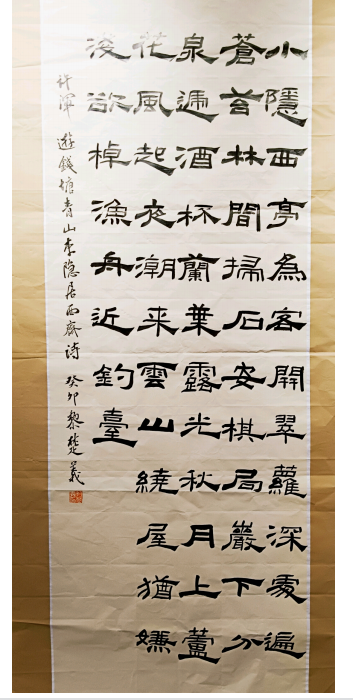 小隱西亭為客開翠蘿深處遍
蒼苔林間掃石安棋局巖下分
泉遞酒杯蘭葉露光秋月上蘆
花風起夜潮来雲山繞屋猶嫌
淺欲棹漁舟近釣臺
許渾 遊錢塘青山李隱居西齋詩 癸卯 黎楚義